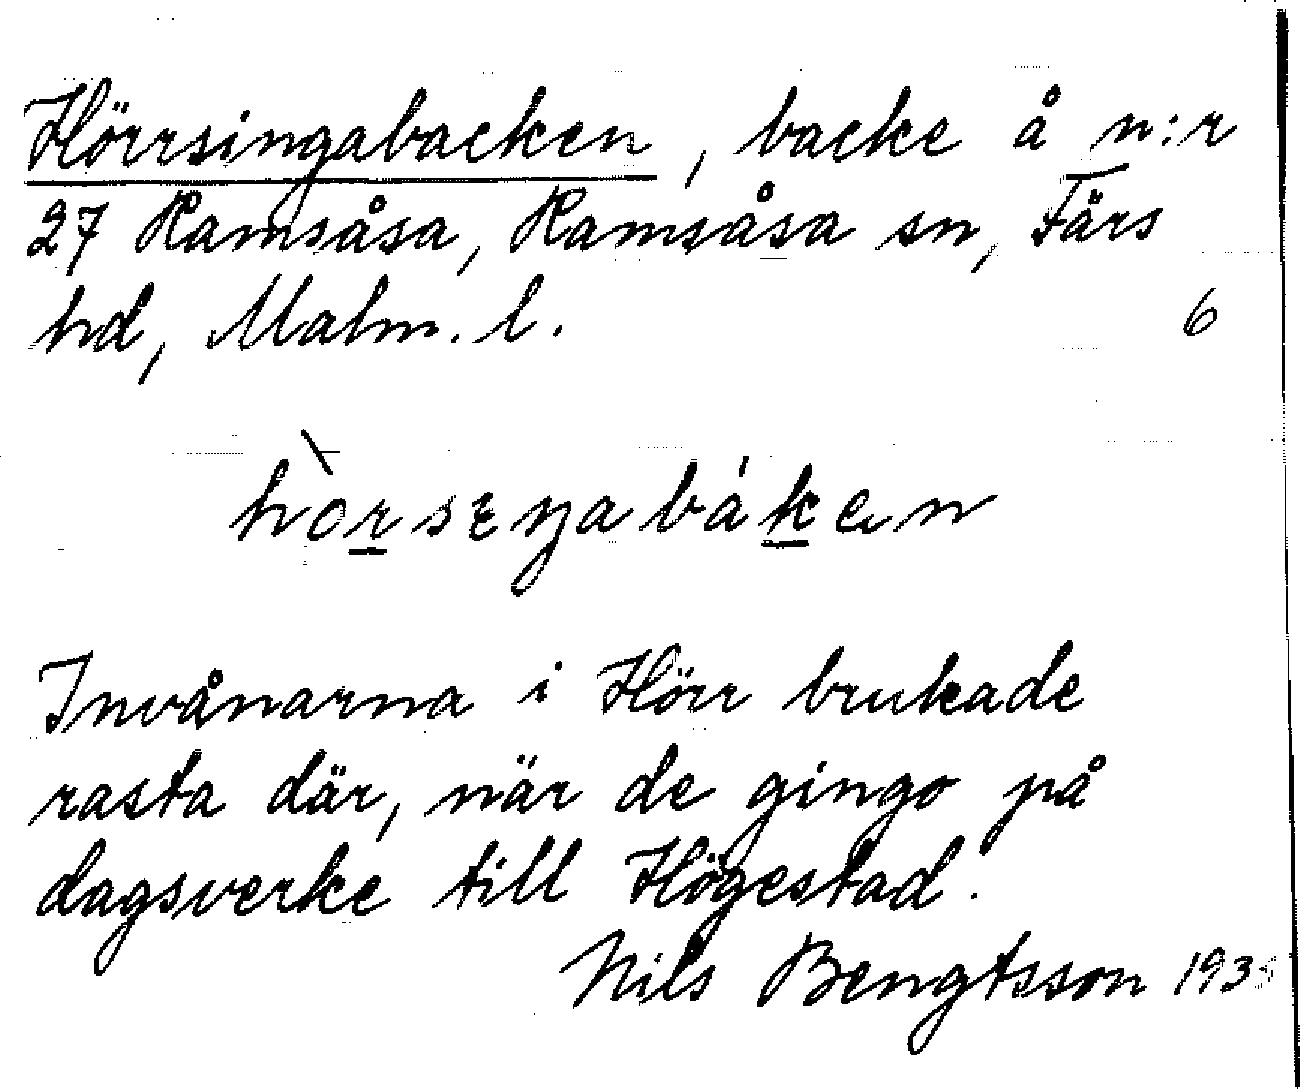 Hörrsingabacken, backe å n:r
27 Ramsåsa, Ramsåsa sn, Färs
hd, Malm. l.
6
Invånarna i Hörr brukade
rasta där, när de gingo på
dagsverke till Högestad.
Nils Bengtsson